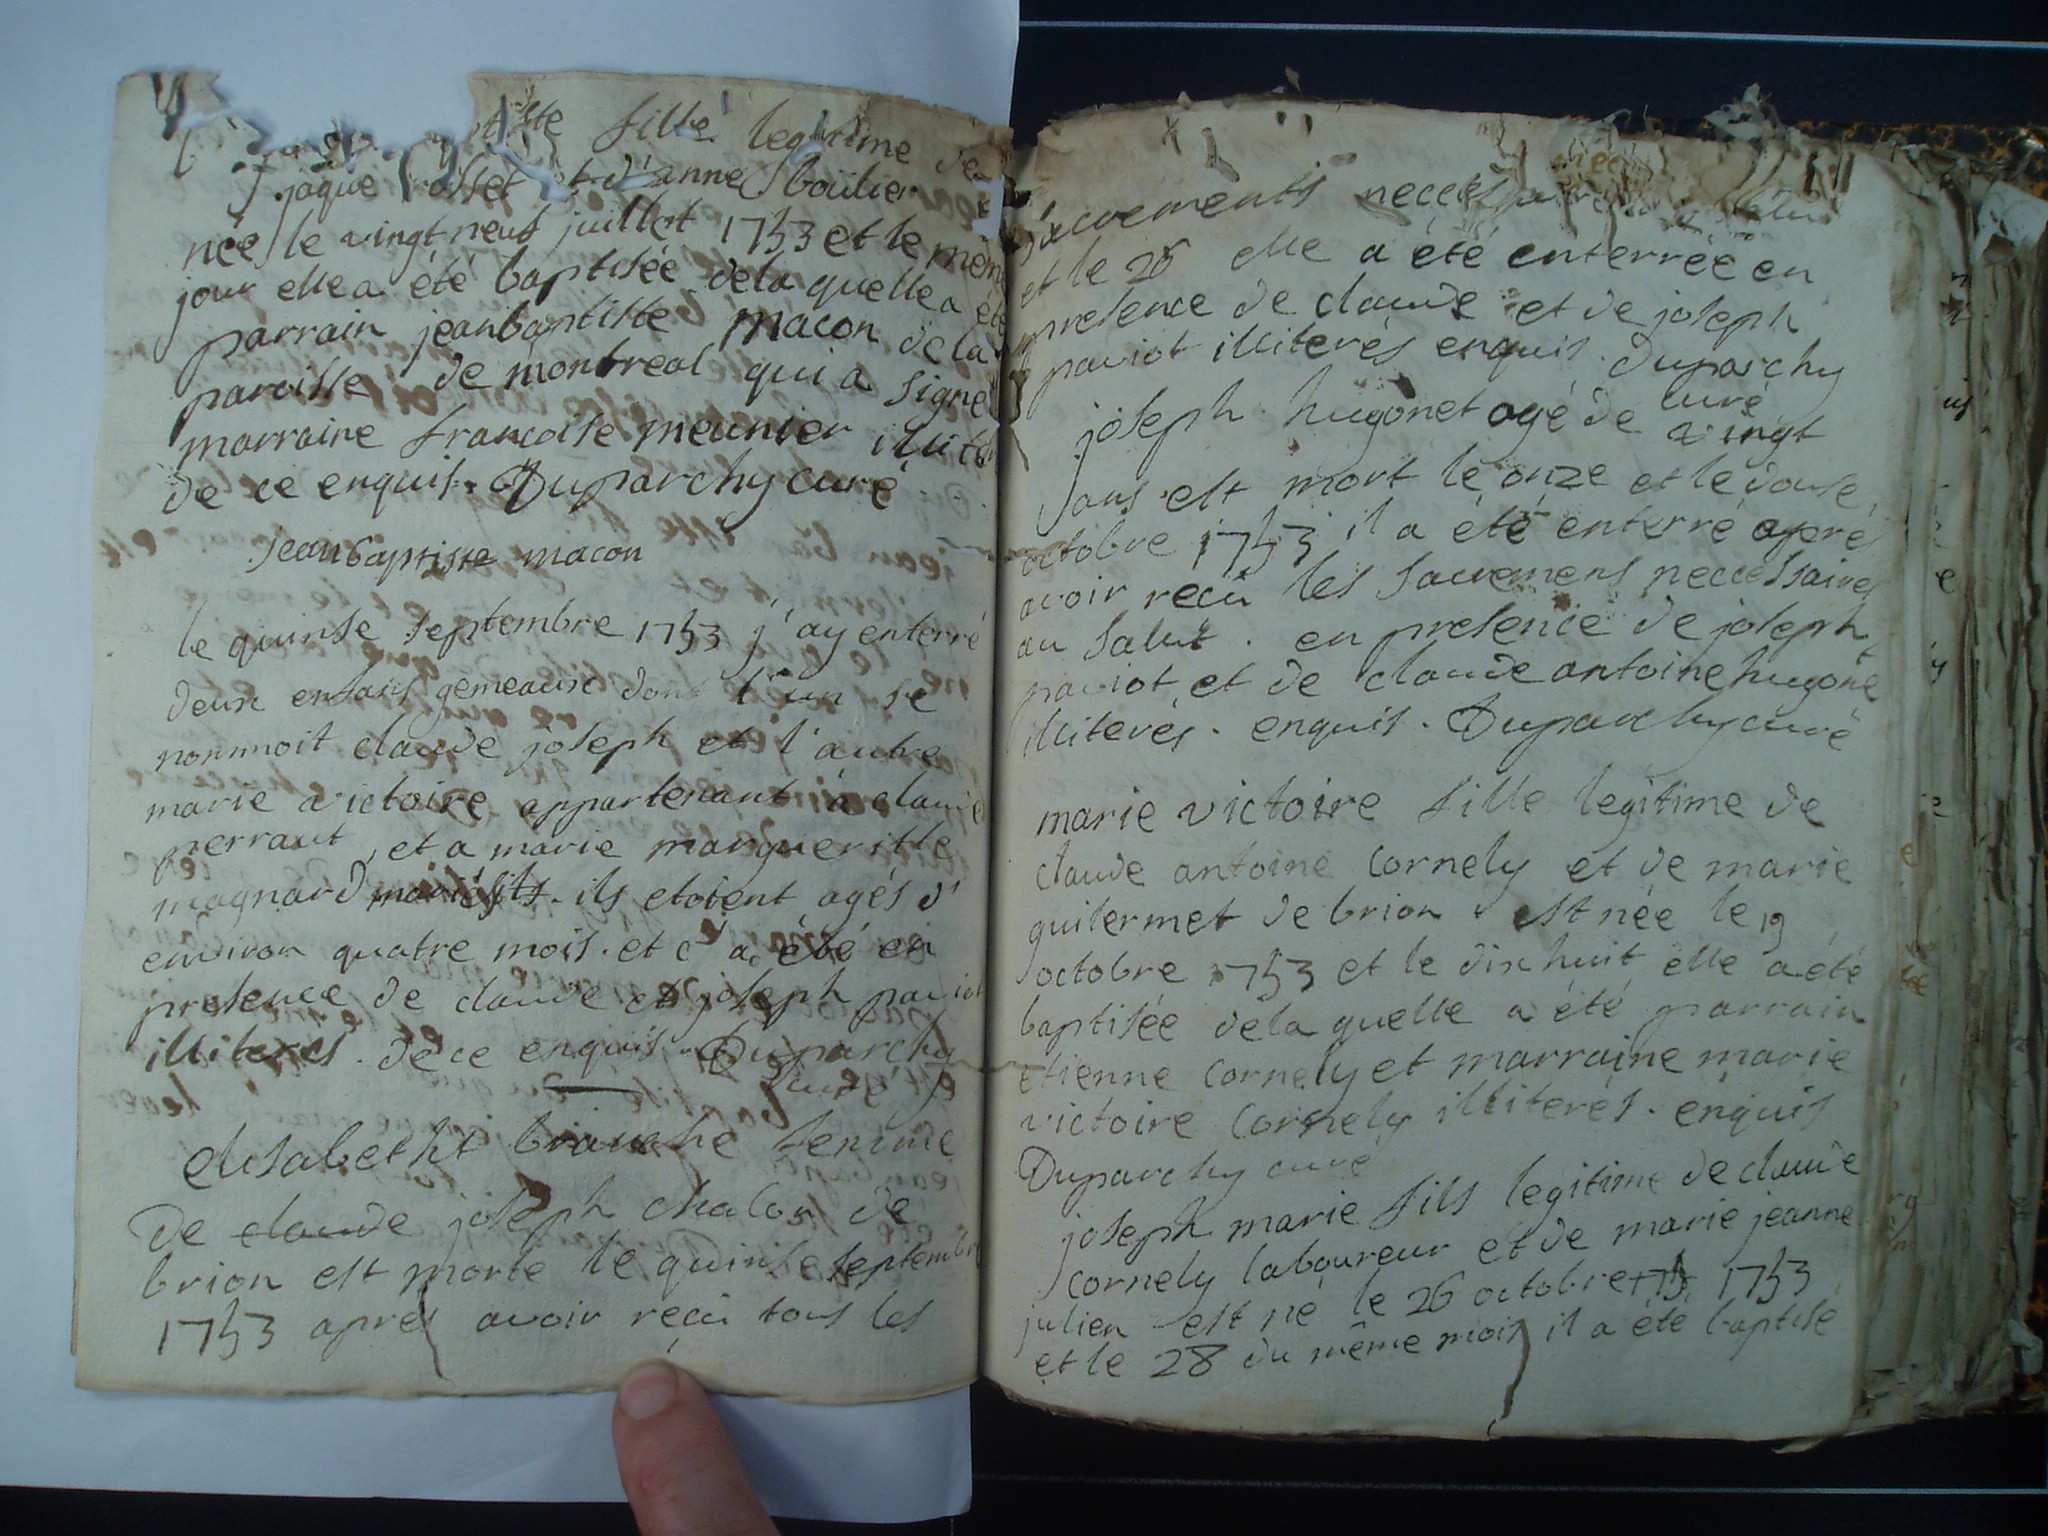 fille legitime de
jaque et d'anne boulier
née le vingt neuf juillet 1753 et le même
jour elle a été baptisée dela quelle a été
parrain jeanbaptiste macon de la
paroisse de montreal qui a signé
marraine francoise meunier illit
de ce enquis. Duparchy curé
jeanbaptiste macon
le quinse septembre 1753 j'ay enterré
deux enfans gemeaux dont l'un se
nommoit claude joseph et l'autre
marie victoire appartenant à claude
perraut, et a marie margueritte
magnard mariés. ils etoient agés d'
environ quatre mois. et c'a été en
presence de claude et joseph paviot
illiterés. de ce enquis. Duparchy
curé
elisabetht branche femme
de claude joseph chalon de
brion est morte le quinse septembre
1753 aprés avoir recü tous les
sacrements necessaires
et le 26 elle a été enterrée en
presence de claude et de joseph
paviot illiterés enquis. Duparchy
curé
joseph hugonet agé de vingt
ans est mort le onze et le douse
octobre 1753 il a été enterré aprés
avoir recü les sacremens neccessaires
au salut. en presence de joseph
paviot et de claude antoine hugonet
illiterés. enquis. Duparchy curé
marie victoire fille legitime de
claude antoine cornely et de marie
guilermet de brion est née le 19
octobre 1753 et le dix huit elle a été
baptisée dela quelle a été parrain
etienne cornely et marraine marie
victoire cornely illiterés. enquis
Duparchy curé
joseph marie fils legitime de claude
cornely laboureur et de marie jeanne
julien est né le 26 octobre 175 1753
et le 28 du même mois il a été baptisé